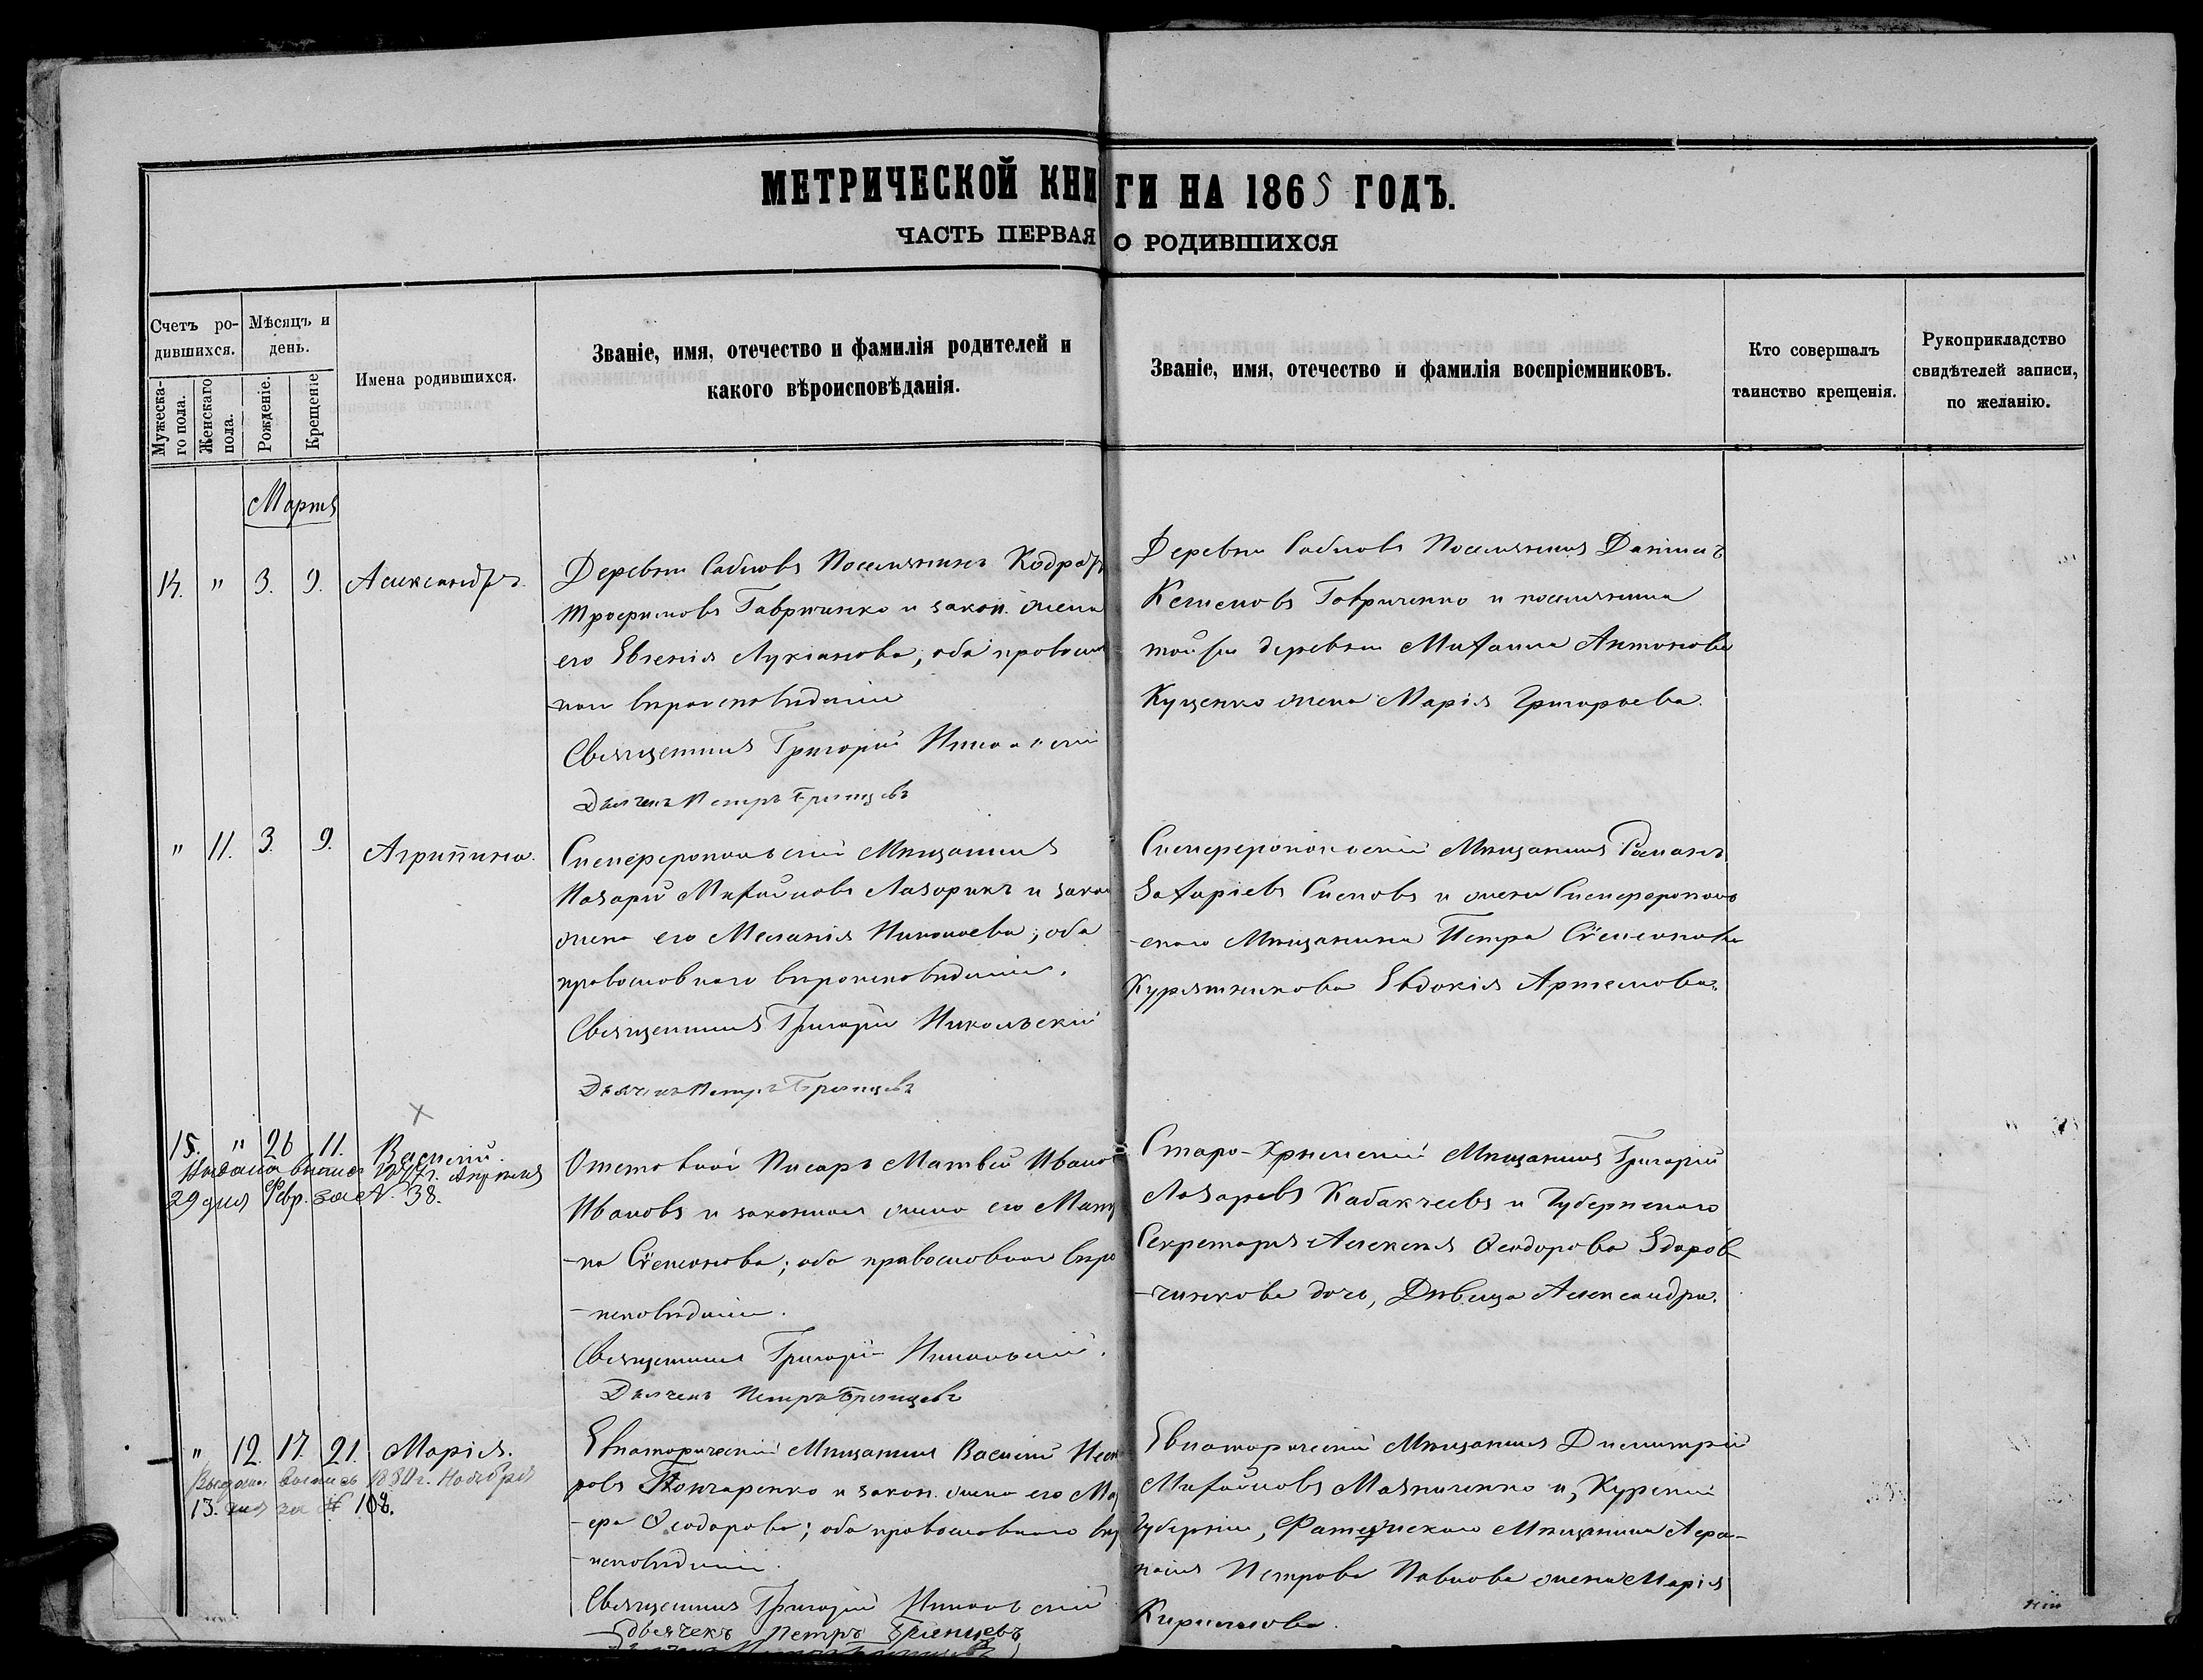 МЕТРИЧЕСКОЙ КНИГИ НА 1865 ГОДЪ.
ЧАСТЬ ПЕРВАЯ О РОДИВШИХСЯ
Счетъ ро-
дившихся.
Мужеска-
го пола.
Женскаго
пола.
Мѣсяцъ и
день.
Рожденіе.
Крещеніе
Имена родившихся.
Званіе, имя, отечество и фамилія родителей и
какого вѣроисповѣданія.
Званіе, имя, отечество и фамилія воспріемниковъ.
Кто совершалъ
таинство крещенія.
Рукоприкладство
свидѣтелей записи,
по желанію.
Мартъ
14. " 3. 9. Александръ
Деревни Сабловъ Поселянинъ Кодратъ
Трофимовъ Гавриченко и закон. жена
его Евгенія Лукіанова; оба православ
наго вѣроисповѣданія
Священникъ Григорій Никольскій
Дьячекъ Петръ Грянцевъ
Деревни Сабловъ Поселянинъ Даніилъ
Гавриченко и поселянина
той же деревни Михаила Антонова
Куценко жена Марія Григорьева.
" 11. 3. 9. Агрипина.
Симферопольскій Мѣщанинъ
Назарій Михайловъ Лазорикъ и закон
жена его Меланія Николаева; оба
православнаго вѣроисповѣданія.
Священникъ Григорій Никольскій
Дьячекъ Петръ Грянцевъ
Симферопольскій Мѣщанинъ Романъ
Захаріевъ Симовъ и жена Симферополь
скаго Мѣщанина Петра Стефанова
Курятникова Евдокія Артемова.
15. " 26 11. Василій.
29 дня Февр. за № 38.
Писарь Матвей Иванов
Ивановъ и законная жена его Матр
на Стефанова; оба православнаго вѣро
-исповѣданія.
Священникъ Григорій Никольскій.
Дьячекъ Петръ Грянцевъ
Старо-Крымскій Мѣщанинъ Григорій
Лазаревъ Кабакчеевъ и Губернскаго
Секретаря Алексея Ѳеодорова Здоров
-чинкова дочь, Дѣвица Александра.
" 12. 17. 21. Марія.
Выдана выпись 1880 г. Ноября
13. дня за № 108.
Евпаторическій Мѣщанинъ Василій
ровъ Гончаренко и закон. жена его
Ѳеодорова; оба православнаго вѣ
-исповѣданія.
Священникъ Григорій Никольскій
Дьячекъ Петръ Грянцевъ
Евпаторическій Мѣщанинъ Димитрій
Михайловъ Мазниченко и, Курской
Губерніи, Фатежскаго Мѣщанина Афа-
насія Петрова Павлова жена Марія
Кириллова.